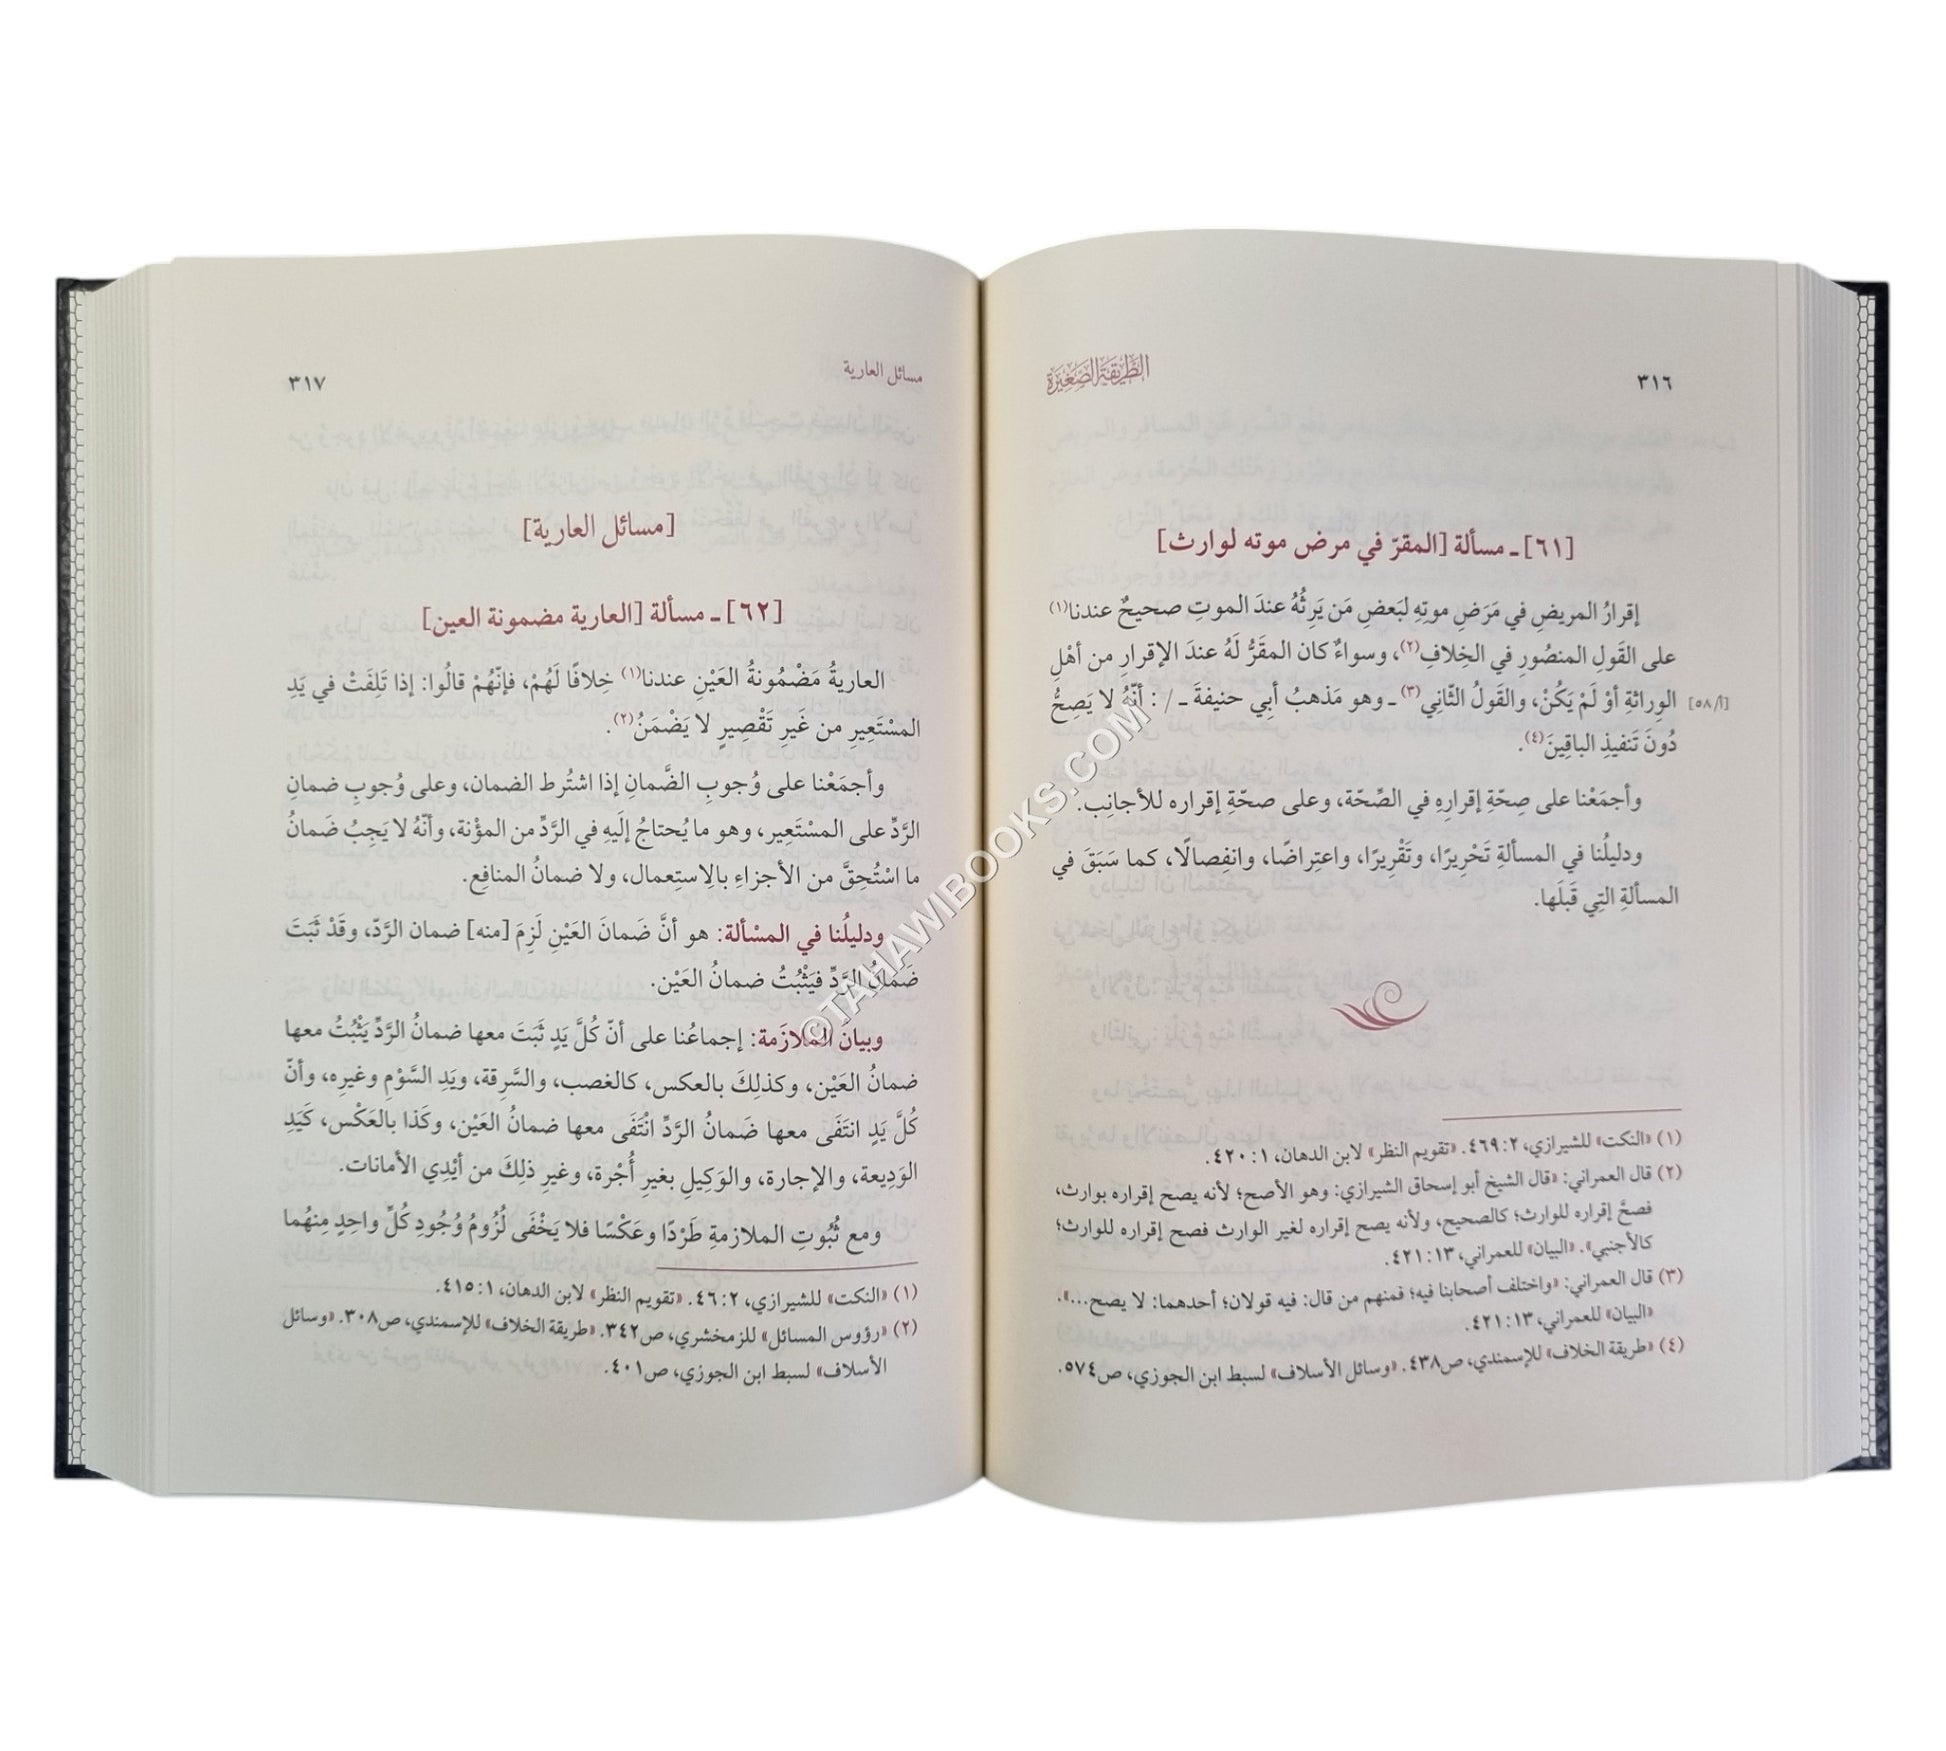 ٣١٦
الطريقة الصغيرة
[٦١] ـ مسألة [المقرّ في مرض موته لوارث]
إقرارُ المريضِ في مَرَضِ موتِهِ لبَعضِ مَن يَرِثُهُ عندَ الموتِ صحيحٌ عندنا(١)
على القَولِ المنصُورِ في الخِلافِ(٢)، وسواءٌ كان المقَرُّ لَهُ عندَ الإقرارِ من أهْلِ
الوِراثةِ أوْ لَمْ يَكُنْ، والقَولُ الثّانِي(٣) ـ وهو مَذهبُ أبِي حنيفةَ ـ / : أنّهُ لا يَصِحُّ
[٥٨/أ]
دُونَ تَنفيذِ الباقِينَ(٤).
وأجمَعْنا على صِحّةِ إقرارِهِ في الصِّحّة، وعلى صحّةِ إقراره للأجانِب.
ودليلُنا في المسألةِ تَحْرِيرًا، وتَقْرِيرًا، واعتِراضًا، وانفِصالًا، كما سَبَقَ في
المسألةِ التِي قَبلَها.
(١) «النكت» للشيرازي، ٢: ٤٦٩. «تقويم النظر» لابن الدهان، ١: ٤٢٠.
(٢) قال العمراني: «قال الشيخ أبو إسحاق الشيرازي: وهو الأصح؛ لأنه يصح إقراره بوارث،
فصحَّ إقراره للوارث؛ كالصحيح، ولأنه يصح إقراره لغير الوارث فصح إقراره للوارث؛
كالأجنبي». «البيان» للعمراني، ١٣: ٤٢١.
(٣) قال العمراني: «واختلف أصحابنا فيه؛ فمنهم من قال: فيه قولان؛ أحدهما: لا يصح...».
«البيان» للعمراني، ١٣: ٤٢١.
(٤) «طريقة الخلاف» للإسمندي، ص٤٣٨. «وسائل الأسلاف» لسبط ابن الجوزي، ص٥٧٤.
مسائل العارية
٣١٧
[مسائل العارية]
[٦٢] ـ مسألة [العارية مضمونة العين]
العاريةُ مَضْمُونةُ العَيْنِ عندنا(١) خِلافًا لَهُمْ، فإنّهُمْ قالُوا: إذا تَلِفَتْ في يَدِ
المسْتَعِيرِ من غَيرِ تَقْصِيرٍ لا يَضْمَنُ(٢).
وأجمَعْنا على وُجوبِ الضَّمانِ إذا اشتُرط الضمان، وعلى وُجوبِ ضمانِ
الرَّدِّ على المسْتَعِير، وهو ما يُحتاجُ إلَيهِ في الرَّدِّ من المؤْنة، وأنّهُ لا يَجِبُ ضَمانُ
ما اسْتُحِقَّ من الأجزاءِ بالاِستِعمال، ولا ضمانُ المنافِع.
ودليلُنا في المسْألة: هو أنَّ ضَمانَ العَيْنِ لَزِمَ [منه] ضمان الرَّدّ، وقَدْ ثَبَتَ
ضَمانُ الرَّدِّ فيَثْبُتُ ضمانُ العَيْن.
وبيانُ المُلازَمة: إجماعُنا على أنّ كُلَّ يَدٍ ثَبَتَ معها ضمانُ الرَّدِّ يَثْبُتُ معها
ضمانُ العَيْن، وكذلِكَ بالعكس، كالغصب، والسَّرِقة، ويَدِ السَّوْمِ وغيرِه، وأنّ
كُلَّ يَدٍ انتَفَى معها ضَمانُ الرَّدِّ انْتَفَى معها ضمانُ العَيْن، وكَذا بالعَكْس، كَيَدِ
الوَدِيعة، والإجارة، والوَكِيلِ بغيرِ أُجْرة، وغيرِ ذلِكَ من أيْدِي الأمانات.
ومع ثُبُوتِ الملازمةِ طَرْدًا وعَكْسًا فلا يَخْفَى لُزُومُ وُجُودِ كُلِّ واحِدٍ مِنهُما
(١) «النكت» للشيرازي، ٢: ٤٦. «تقويم النظر» لابن الدهان، ١: ٤١٥.
(٢) «رؤوس المسائل» للزمخشري، ص٣٤٢. «طريقة الخلاف» للإسمندي، ص٣٠٨. «وسائل
الأسلاف» لسبط ابن الجوزي، ص٤٠١.
©TAHAWIBOOKS.COM